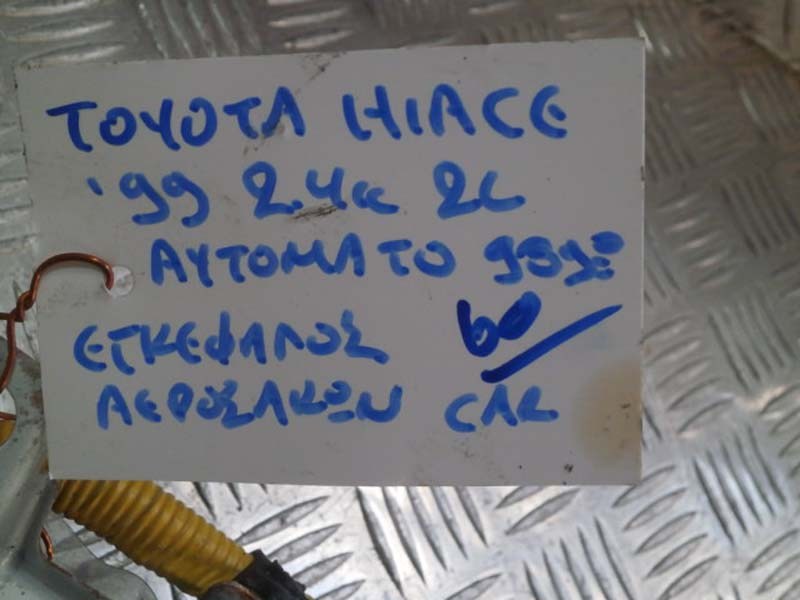 TOYOTA HIACE
'99 2.4cc 2L
ΑΥΤΟΜΑΤΟ
ΕΓΚΕΦΑΛΟΣ 60
ΑΕΡΟΣΑΚΩΝ CAR